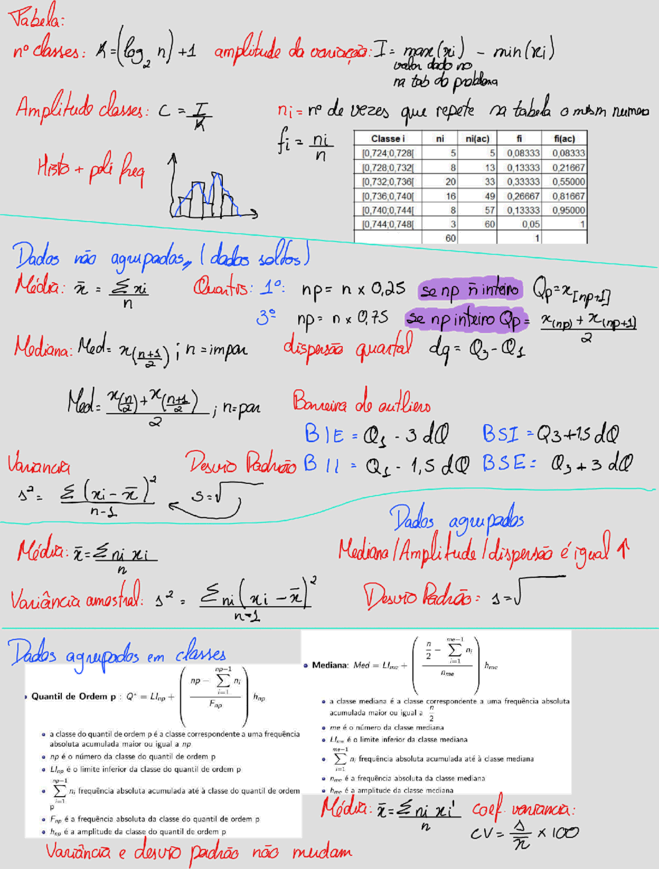 Tabela:
nº classes: K=(log₂ n)+1 amplitude da variação: I = max(xi) - min(xi)
valor dado no
na tab do problema
Amplitude classes: C = I/K ni = nº de vezes que repete na tabela o mesm numero
fi = ni/n
Histo + poli freq
Classe i ni ni(ac) fi fi(ac)
[0,724;0,728[ 5 5 0,08333 0,08333
[0,728;0,732[ 8 13 0,13333 0,21667
[0,732;0,736[ 20 33 0,33333 0,55000
[0,736;0,740[ 16 49 0,26667 0,81667
[0,740;0,744[ 8 57 0,13333 0,95000
[0,744;0,748[ 3 60 0,05 1
60 1
Dados não agrupados,, (dados soltos)
Média: x̄ = Σxi/n Quantis: 1º: np = n x 0,25 se np ñ inteiro Qp = x[np+1]
3º np = n x 0,75 se np inteiro Qp = (x(np) + x(np+1))/2
Mediana: Med = x((n+1)/2) ; n = impar dispersão quartal dq = Q3 - Q1
Med = (x(n/2) + x((n+1)/2))/2 ; n=par Barreira de outliers
BIE = Q1 - 3 dQ BSI = Q3+1,5 dQ
Variancia Desvio Padrão BII = Q1 - 1,5 dQ BSE = Q3 + 3 dQ
s² = Σ(xi - x̄)²/(n-1) s=√
Dados agrupados
Média: x̄ = Σ ni xi/n Mediana/Amplitude/dispersão é igual ↑
Variância amostral: s² = Σ ni(xi - x̄)²/(n-1) Desvio Padrão: s=√
Dados agrupados em classes
• Quantil de Ordem p : Q* = LI_np + ((np - Σ_{i=1}^{np-1} n_i)/F_np) h_np
• a classe do quantil de ordem p é a classe correspondente a uma frequência
absoluta acumulada maior ou igual a np
• np é o número da classe do quantil de ordem p
• LI_np é o limite inferior da classe do quantil de ordem p
• Σ_{i=1}^{np-1} n_i frequência absoluta acumulada até à classe do quantil de ordem
p
• F_np é a frequência absoluta da classe do quantil de ordem p
• h_np é a amplitude da classe do quantil de ordem p
• Mediana: Med = LI_me + ((n/2 - Σ_{i=1}^{me-1} n_i)/n_me) h_me
• a classe mediana é a classe correspondente a uma frequência absoluta
acumulada maior ou igual a n/2
• me é o número da classe mediana
• LI_me é o limite inferior da classe mediana
• Σ_{i=1}^{me-1} n_i frequência absoluta acumulada até à classe mediana
• n_me é a frequência absoluta da classe mediana
• h_me é a amplitude da classe mediana
Média: x̄ = Σ ni xi'/n coef. variancia:
CV = s/x̄ x 100
Variância e desvio padrão não mudam